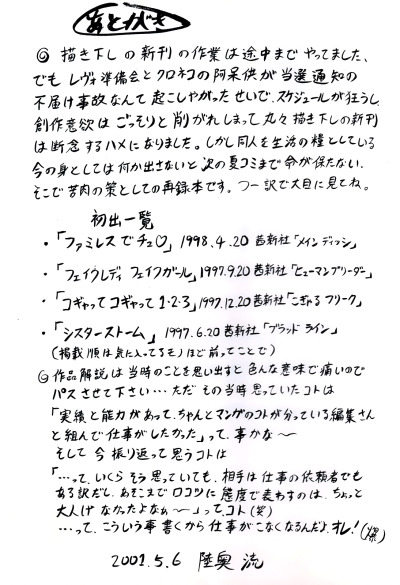 あとがき
◎ 描き下しの新刊の作業は途中までやってました、
でも レヴォ準備会とクロネコの阿呆供が当選通知の
不届け事故なんて起こしやがったせいで、スケジュールが狂うし
創作意欲はごっそりと削がれしまって丸々描き下しの新刊
は断念するハメになりました。しかし同人を生活の糧としている
今の身としては何か出さないと次の夏コミまで命が保たない、
そこで苦肉の策としての再録本です。つー訳で大目に見てね。
初出一覧
・「ファミレスでチュ♡」 1998.4.20 茜新社「メインディッシュ」
・「フェイクレディ フェイクガール」1997.9.20 茜新社「ヒューマンブリーダー」
・「コギャってコギャって1・2・3」1997.12.20 茜新社「こぎゃるフリーク」
・「シスターストーム」 1997.6.20 茜新社「ブラッドライン」
(掲載順は気に入ってるモノほど前ってことで)
◎ 作品解説は当時のことを思い出すと色んな意味で痛いので
パスさせて下さい… ただその当時思っていたコトは
「実績と能力があって、ちゃんとマンガのコトが分っている編集さん
と組んで仕事がしたかった」って、事かな〜
そして 今 振り返って思うコトは
「…って、いくら そう思っていても、相手は仕事の依頼者でも
ある訳だし、あそこまでロコツに態度で表わすのは、ちょっと
大人げなかったよなぁ〜」って、コト(笑)
…って、こういう事書くから仕事がこなくなるんだよ、オレ!(爆)
2001.5.6 陸奥 流